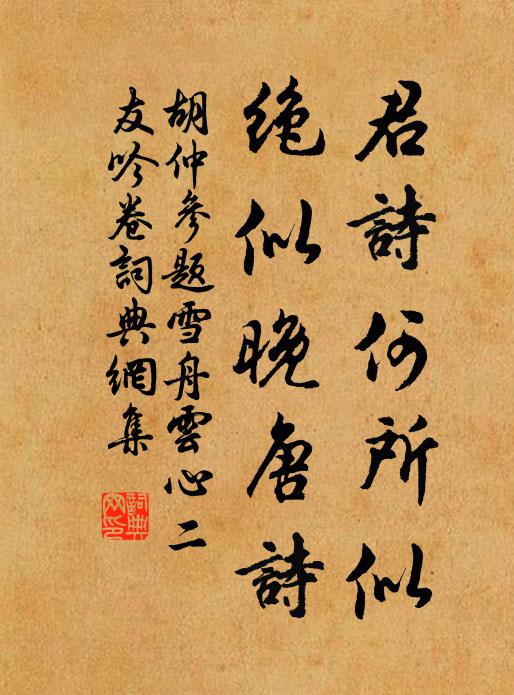 君詩何所似
絶似晚唐詩
胡仲參题雪舟雲心二
友吟卷詞典網集
詞典
网印